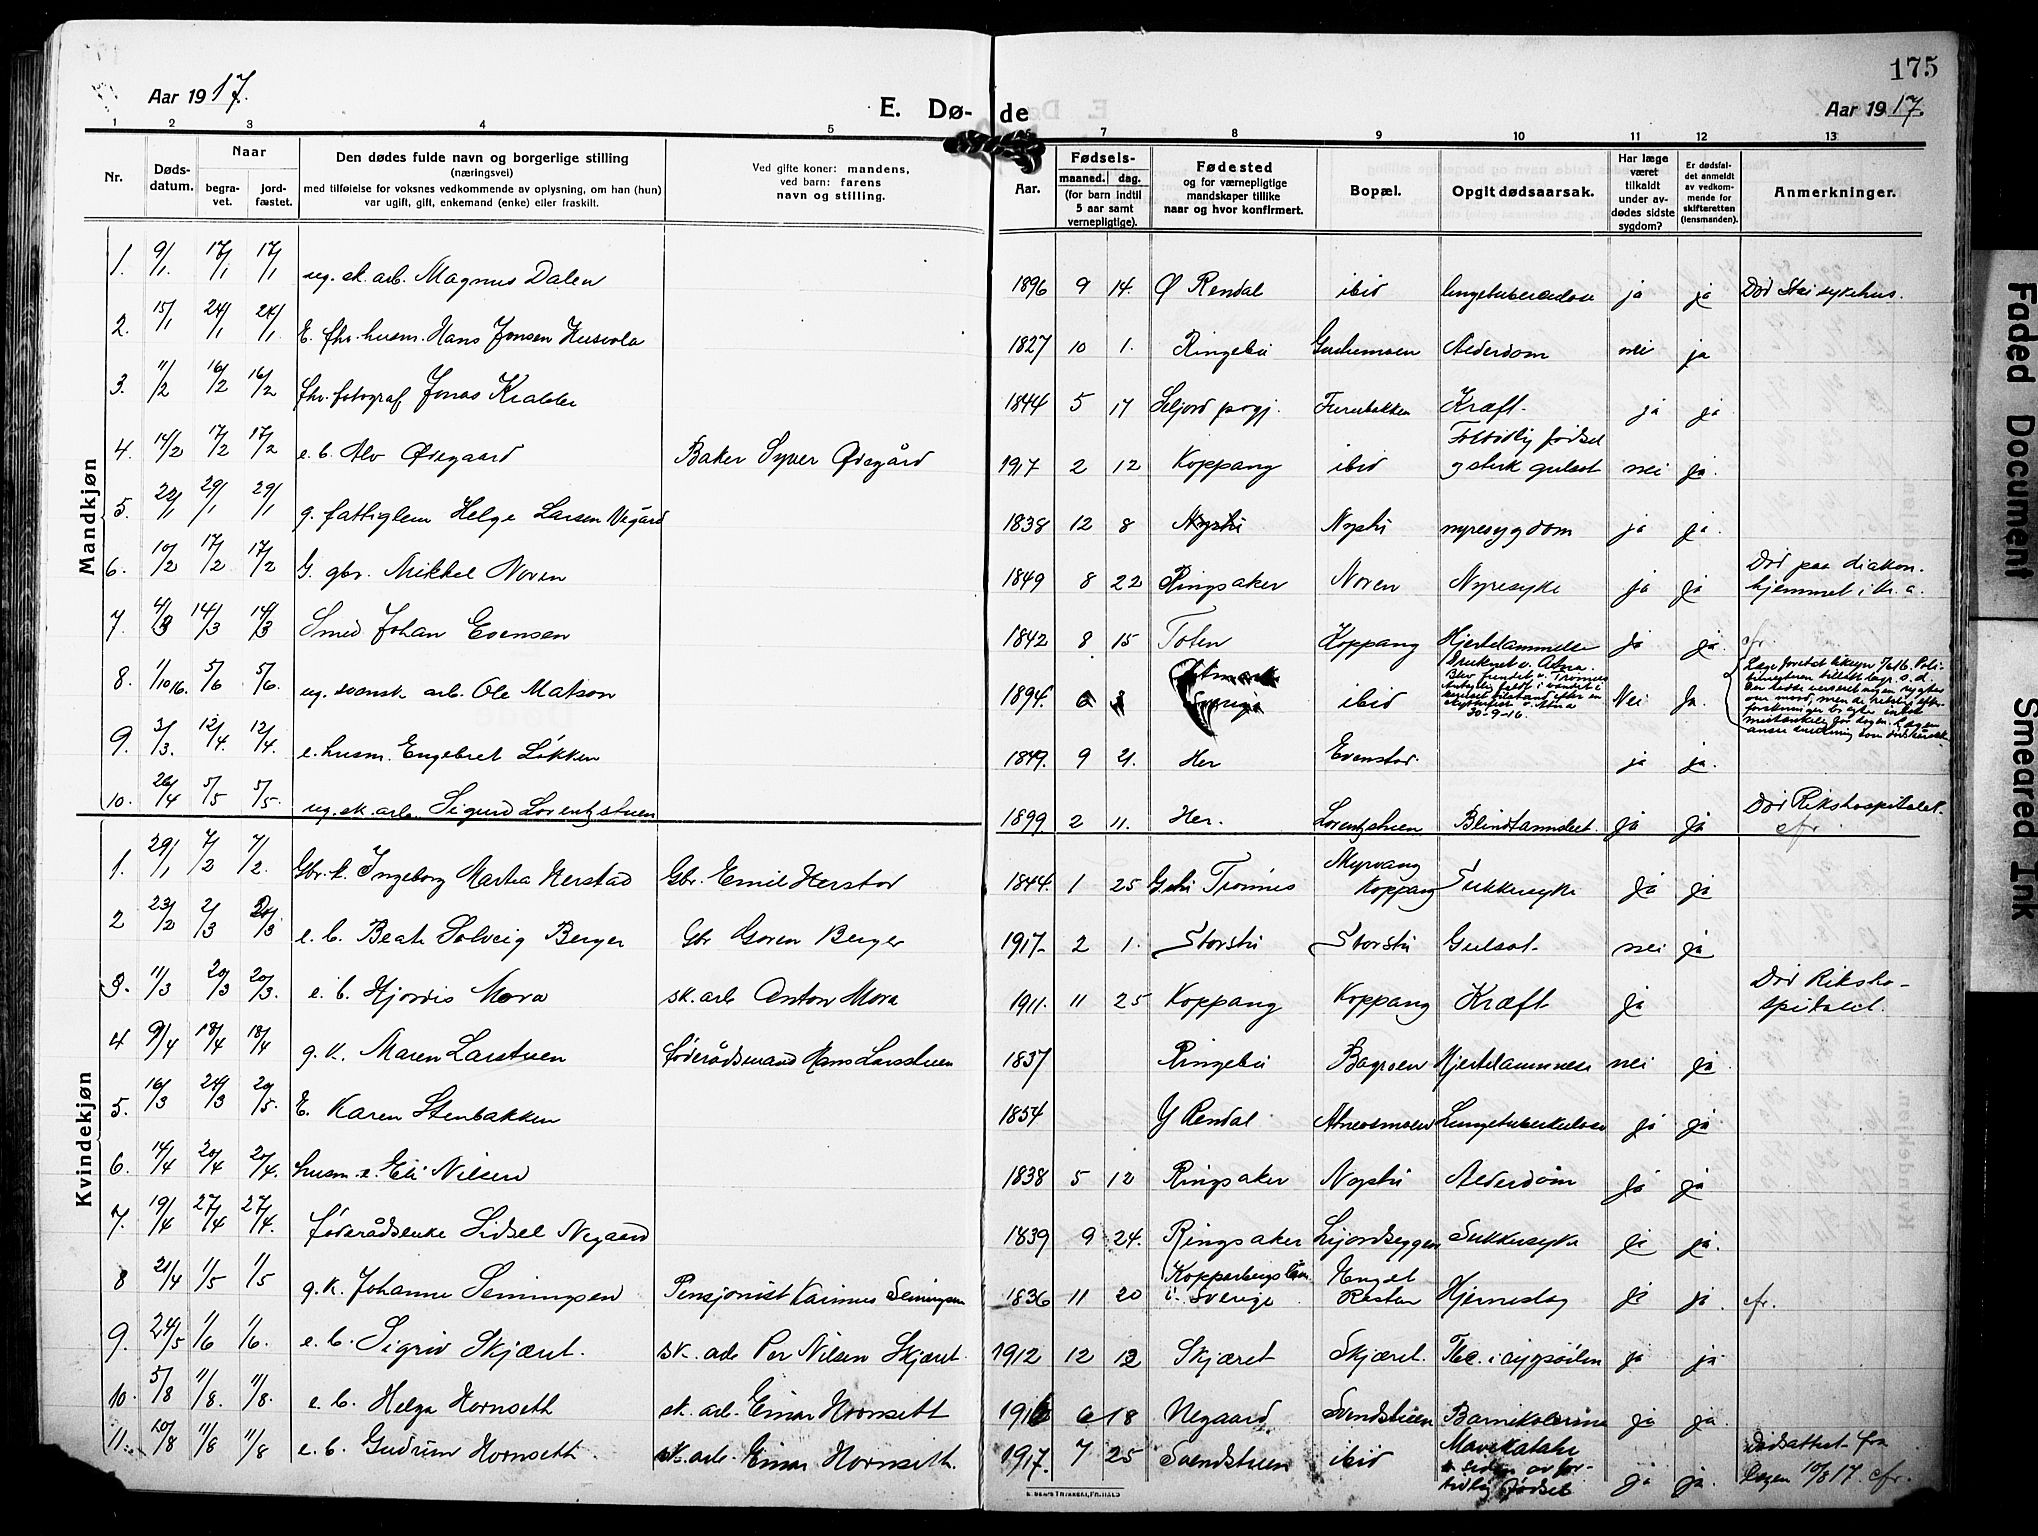 175
Aar 1917.
E. Dø- de
Aar 1917.
1 2 3 4 5 6 7 8 9 10 11 12 13
Nr.
Døds-
datum.
Naar
begra-
vet.
jord-
fæstet.
Den dødes fulde navn og borgerlige stilling
(næringsvei)
med tilføielse for voksnes vedkommende av oplysning, om han (hun)
var ugift, gift, enkemand (enke) eller fraskilt.
Ved gifte koner: mandens,
ved barn: farens
navn og stilling.
Aar.
Fødsels-
maaned. dag.
(for barn indtil
5 aar samt
vernepligtige).
Fødested
og for værnepligtige
mandskaper tillike
naar og hvor konfirmert.
Bopæl.
Opgit dødsaarsak.
Har læge
været
tilkaldt
under av-
dødes sidste
sygdom?
Er dødsfal-
det anmeldt
av vedkom-
mende for
skifteretten
(lensmanden).
Anmerkninger.
Mandkjøn
1. 9/1. 17/1 17/1 ug. sk. arb. Magnus Dalen 1896 9 14. Ø Rendal ibid lungetuberculose ja ja Død Stai sykehus.
2. 15/1 24/1 24/1 E. fhv. husm. Hans Jonsen Husvola 1827 10 1. Ringebu Alderdom nei ja
3. 11/2 16/2 16/2 fhv. fotograf Jonas Krabbe 1844 5 17 Seljord prgj. Furubakken Kræft. ja ja
4. 14/2 17/2 17/2 e. b. Alv Ødegaard Baker Syver Ødegård 1917 2 12 Koppang ibid Fortidlig fødsel
og sterk gulsot nei ja.
5. 22/1 29/1 29/1 g. fattiglem Helge Larsen Negård 1838 12 8 Nysti Nysti nyresygdom ja ja.
6. 10/2 17/2 17/2 G. gbr. Mikkel Noren 1849 8 22 Ringsaker Noren Nyresyke ja ja Død paa diakon-
hjemmet i Kr. a.
7. 4/3 14/3 14/3 Smed Johan Evensen 1842 8 15 Toten Koppang Hjertelammelse ja ja. cfr.
8. 1/10 16. 5/6 5/6. ug. svensk arb. Ole Matson 1894. 6 3 Sverige ibid Druknet v. Atna.
Blev fundet v. Trønnes
30-9-16. Nei Ja.
9. 3/3. 12/4. 12/4. e. husm. Engebret Løkken 1849. 9 21. Her Evenstad. ja ja.
10. 26/4 5/5 5/5. ug. sk. arb. Sigurd Lorentzstuen 1899 2 11. Her. Lorentzstuen Blindtarmsbet. ja ja Død Rikshospitalet.
cfr.
Kvindekjøn
1. 29/1 7/2 7/2. Gbr. k. Ingeborg Martea Herstad Gbr. Emil Herstad 1844. 1 25 Trønnes Myrvang
Koppang Sukkersyke ja ja
2 23/2 2/3 e. b. Beate Solveig Berger Gbr Goren Berger 1917- 2 1. Storsti Storsti Gulsot. nei ja
3. 11/3 20/3 20/3. e. b. Hjørdis Mora sk. arb Anton Mora 1911. 11 25 Koppang Koppang Kræft ja Død Riksho-
spitalet.
4 9/4 18/4 18/4 g. k. Maren Larstuen føderådsmand Hans Larsstuen 1837 Ringebu Hjertelammelse nei ja
5. 16/3 24/3 20/5. E. Karen Stenbakken 1854 Y Rendal Atneosmoen Lungetuberkulose ja ja
6. 14/4 20/4 20/4. husm. e. Eli Nilsen 1838 5 12 Ringsaker Nysti Alderdom ja ja
7. 19/4 27/4 27/4. føderådsenke Sidsel Negaard 1839 9 24. Ringsaker Sukkersyke ja ja.
8 21/4 1/5 1/5 g. k. Johanne Semingsen Pensjonist Semingsen 1836 11 20 Kopparbergs län
i Sverige Hjerneslag ja ja. cfr.
9. 24/5 1/6 1/6. e. b. Sigrid Skjæret. sk. arb Per Nilsen Skjæret. 1912 12 12 Skjæret Skjæret. ja ja
10. 5/8 11/8. 11/8. e. b. Helga Hornseth sk. arb. Einar Hornseth 1916 6 18 Negaard Svendstuen Barnekolerine ja ja.
11. 20/8 11/8 11/8 e. b. Gudrun Hornseth. sk. arb. Einar Hornseth. 1917. 7 25 Svendstuen ibid Mavekatahr
siden av for-
tidlig fødsel ja ja. Dødsattest fra
lægen 10/8 17. cfr.
Faded Document
Smeared Ink